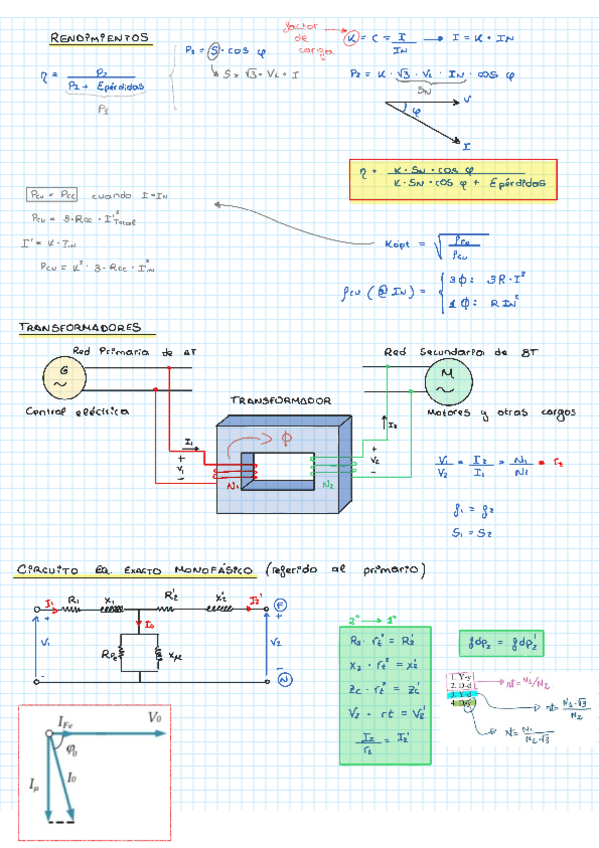 RENDIMIENTOS
η = P₂ / (P₂ + Epérdidas)
P₁
P₂ = S · cos φ
S = √3 · V_L · I
factor de carga
K = C = I / I_N → I = K · I_N
P₂ = K · √3 · V_L · I_N · cos φ
S_N
V
φ
I
η = K · S_N · cos φ / (K · S_N · cos φ + Epérdidas)
P_CU = P_CC cuando I = I_N
P_CU = 3 · R_CC · I'²
I' = K · I_IN
P_CU = K² · 3 · R_CC · I²_IN
K_opt = √(P_Fe / P_CU)
P_CU (@ I_N) =
3Φ: 3R · I²
1Φ: R I_N²
TRANSFORMADORES
Red Primaria de AT
Red Secundaria de BT
G
~
M
~
Central eléctrica
TRANSFORMADOR
Motores y otras cargas
I₁
+
V₁
-
N₁
Φ
N₂
I₂
+
V₂
-
V₁ / V₂ = I₂ / I₁ = N₁ / N₂ = r_t
f₁ = f₂
S₁ = S₂
CIRCUITO EQ. EXACTO MONOFÁSICO (referido al primario)
I₁
R₁
X₁
R₂'
X₂'
I₂'
F
+
V₁
-
I₀
R_Fe
X_μ
+
V₂
-
N
2º → 1º
R₂ · r_t² = R₂'
X₂ · r_t² = X₂'
Z_C · r_t² = Z_C'
V₂ · r_t = V₂'
I₂ / r_t = I₂'
fdp₂ = fdp₂'
1. Y-y
2. D-d
3. Y-d
rt = N₁/N₂
rt = N₁ · √3 / N₂
rt = N₁ / (N₂ · √3)
I_Fe
V₀
φ₀
I_μ
I₀